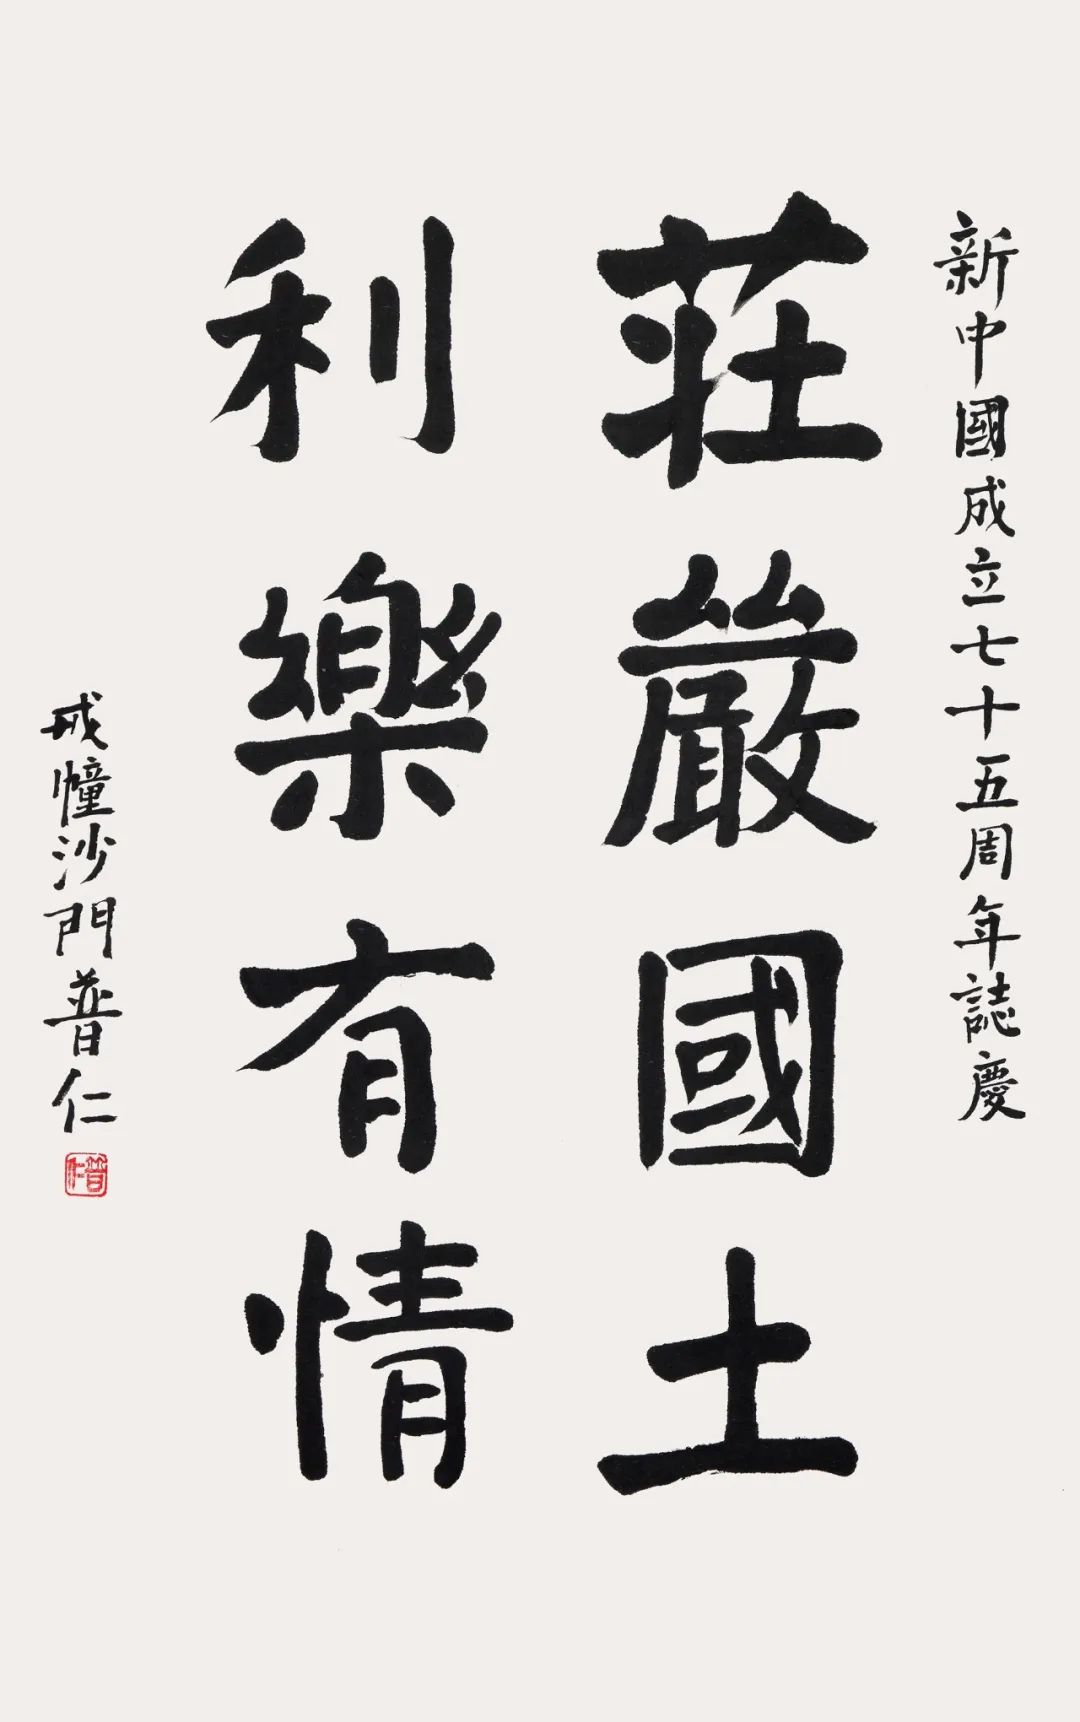 新中國成立七十五周年誌慶
莊嚴國土
利樂有情
戒幢沙門普仁
普仁